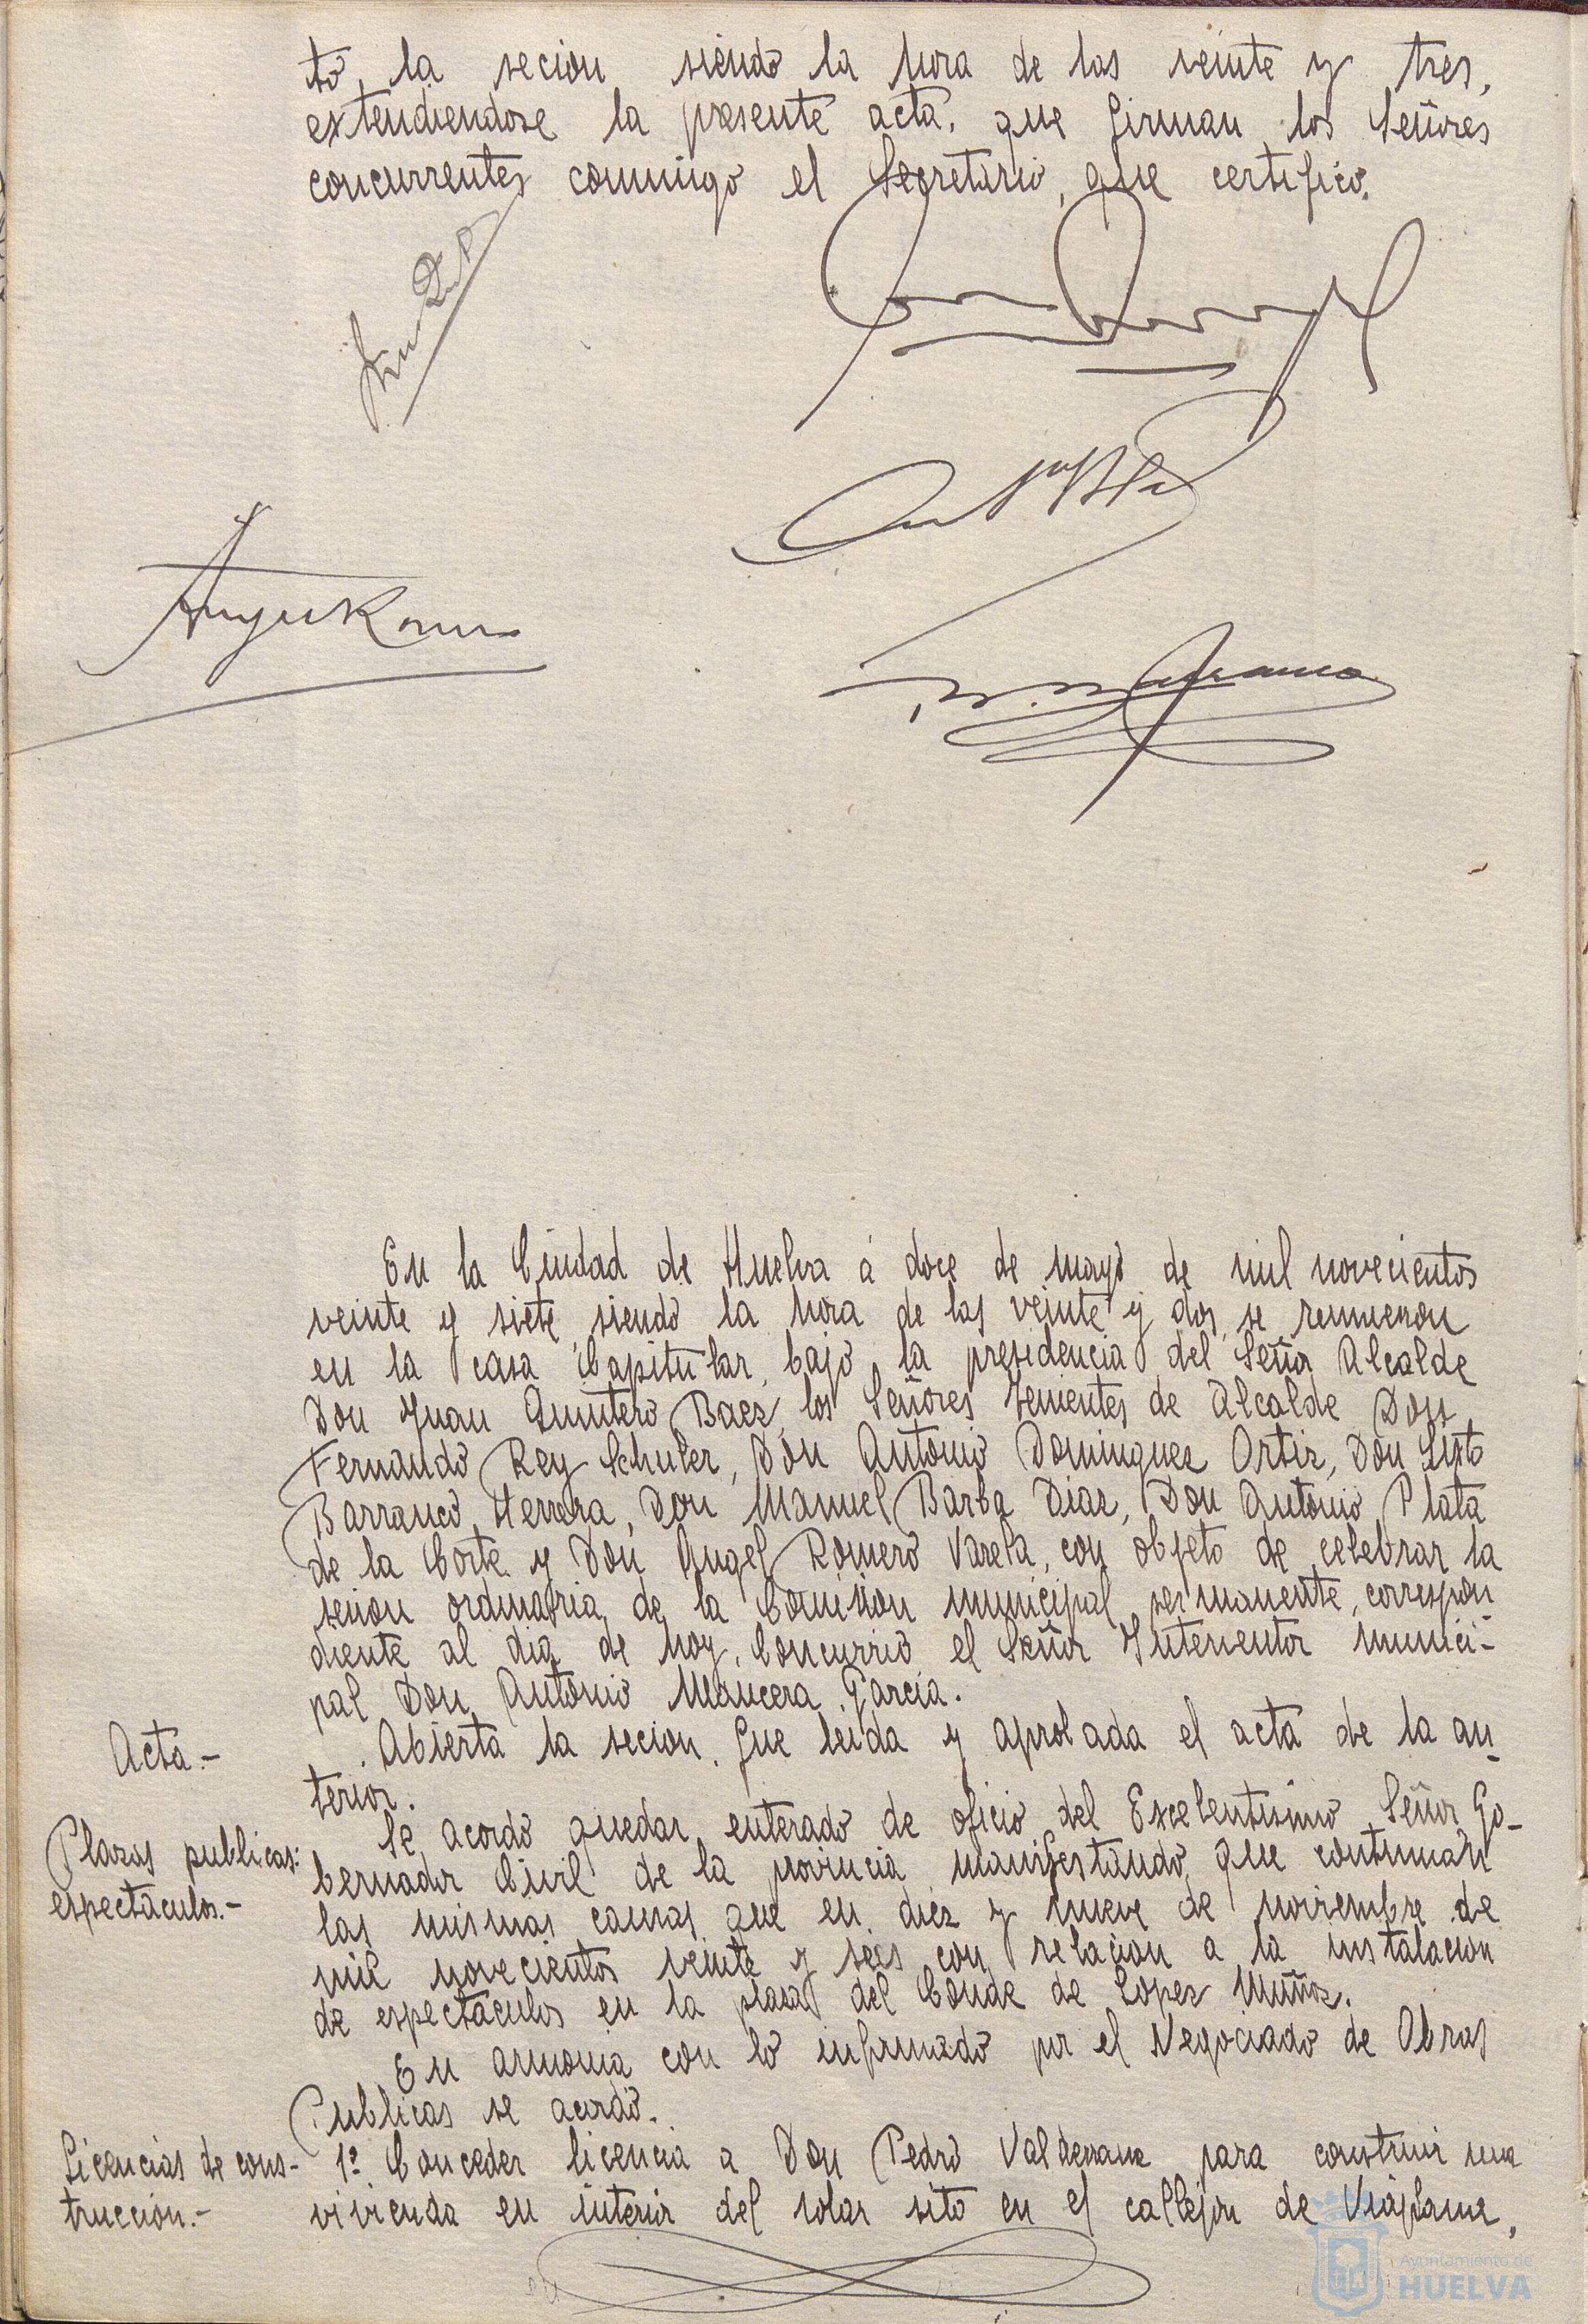 to, la secion siendo la hora de las veinte y tres,
extendiendose la presente acta, que firman los Señores
concurrentes conmigo el Secretario, que certifico.
En la Ciudad de Huelva á doce de mayo de mil novecientos
veinte y siete, siendo la hora de las veinte y dos, se reunieron
en la casa Capitular, bajo la presidencia del Señor Alcalde
Don Juan Quintero Baez, los Señores tenientes de Alcalde Don
Fernando Rey Schuler, Don Antonio Dominguez Ortiz, Don Sixto
Barranco Herrera, Don Manuel Barba Diaz, Don Antonio Plata
de la Corte y Don Angel Romero Varela, con objeto de celebrar la
sesion ordinaria de la Comision municipal permanente, correspon
diente al dia de hoy. Concurrio el Señor Interventor munici-
pal Don Antonio Mancera Garcia.
Acta.-
Abierta la secion, fue leida y aprobada el acta de la an-
terior.
Plazas publicas:
espectaculos.-
Se acordo quedar enterado de oficio del Excelentisimo Señor Go-
bernador Civil de la provincia manifestando que continuan
las mismas causas que en diez y nueve de noviembre de
mil novecientos veinte y seis con relacion a la instalacion
de espectaculos en la plaza del Conde de Lopez Muñoz.
En armonia con lo informado por el Negociado de Obras
Publicas se acordo.
Licencias de cons-
truccion.-
1º Conceder licencia a Don Pedro Valderrama para construir una
vivienda en interior del solar sito en el callejon de Viaplana,
Ayuntamiento de
HUELVA